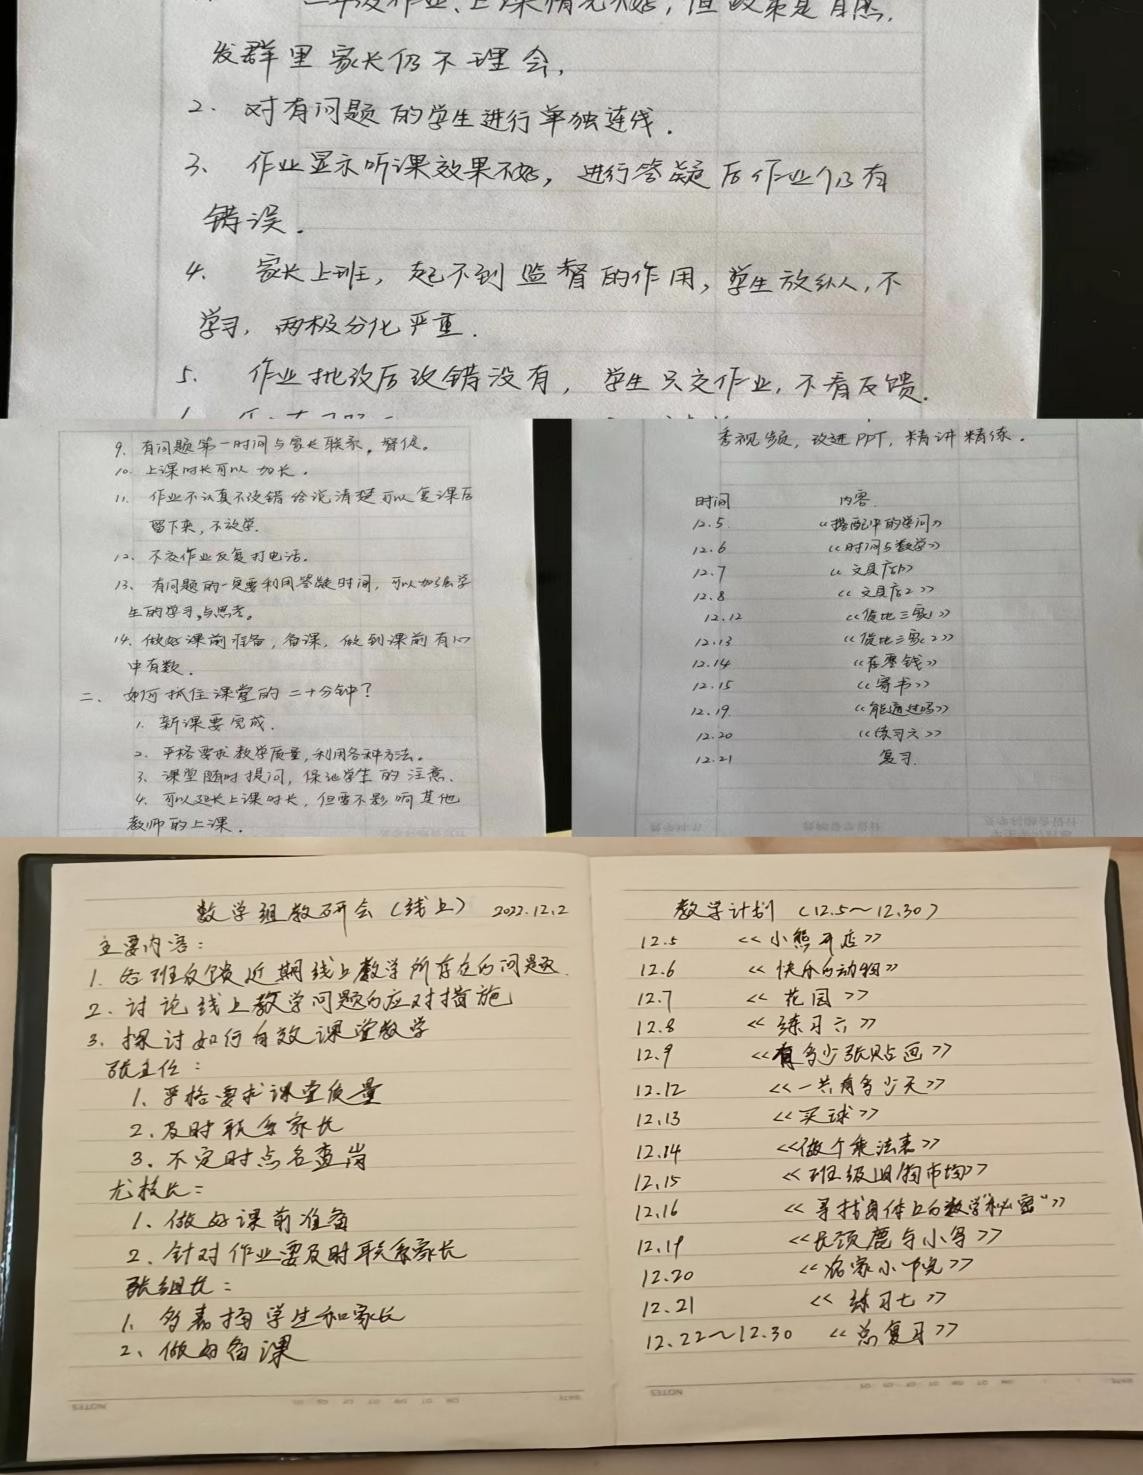 发群里家长仍不理会,
2. 对有问题的学生进行单独连线.
3. 作业显示听课效果不好, 进行答疑后作业仍有
错误.
4. 家长上班, 起不到监督的作用, 学生放纵人, 不
学习, 两极分化严重.
5. 作业批改后改错没有, 学生只交作业, 不看反馈.
9. 有问题第一时间与家长联系, 督促。
10. 上课时长可以加长.
11. 作业不认真不改错给说清楚可以复课后
留下来, 不放学.
12. 不交作业反复打电话.
13. 有问题的一定要利用答疑时间, 可以加强学
生的学习与思考。
14. 做好课前准备, 备课, 做到课前有心
中有数.
二、如何抓住课堂的二十分钟?
1. 新课要完成.
2. 严格要求教学质量, 利用各种方法。
3. 课堂随时提问, 保证学生的注意.
4. 可以延长上课时长, 但要不影响其他
教师的上课.
看视频, 改进PPT, 精讲精练.
时间 内容
12.5 《搭配中的学问》
12.6 《时间与数学》
12.7 《文具店1》
12.8 《文具店2》
12.12 《货比三家1》
12.13 《货比三家2》
12.14 《存零钱》
12.15 《寄书》
12.19 《能通过吗》
12.20 《练习六》
12.21 复习.
数学组教研会(线上) 2022.12.2
主要内容:
1. 各班反馈近期线上教学所存在的问题.
2. 讨论线上教学问题的应对措施
3. 探讨如何有效课堂教学
张主任:
1. 严格要求课堂质量
2. 及时联系家长
3. 不定时点名查岗
尤校长:
1. 做好课前准备
2. 针对作业要及时联系家长
张组长:
1. 多表扬学生和家长
2. 做好备课
教学计划 (12.5~12.30)
12.5 《小熊开店》
12.6 《快乐的动物》
12.7 《花园》
12.8 《练习六》
12.9 《有多少张贴画》
12.12 《一共有多少天》
12.13 《买球》
12.14 《做个乘法表》
12.15 《班级旧物市场》
12.16 《寻找身体上的数学"秘密"》
12.19 《长颈鹿与小鸟》
12.20 《农家小院》
12.21 《练习七》
12.22~12.30 《总复习》